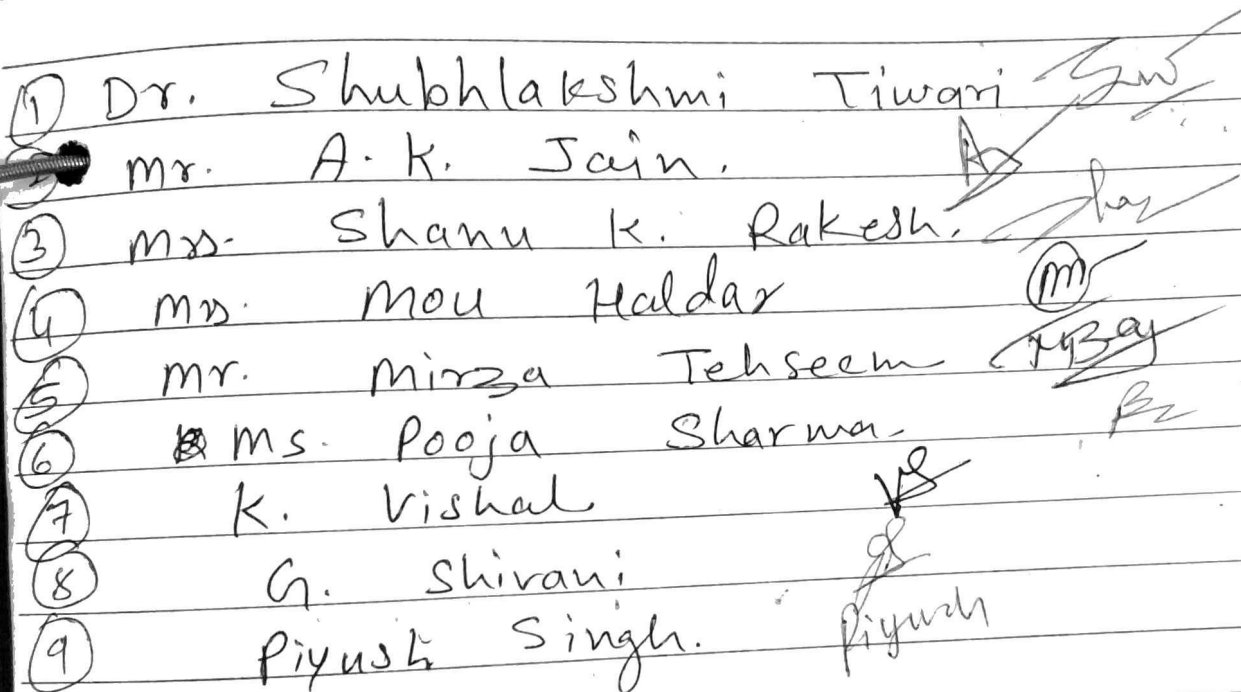 ① Dr. Shubhlakshmi Tiwari
mr. A. K. Jain.
③ Mrs. Shanu K. Rakesh.
④ Mrs. Mou Haldar
⑤ Mr. Mirza Tehseem
⑥ Ms. Pooja Sharma
⑦ K. Vishal VS
⑧ G. Shivani gs
⑨ Piyush Singh. Piyush